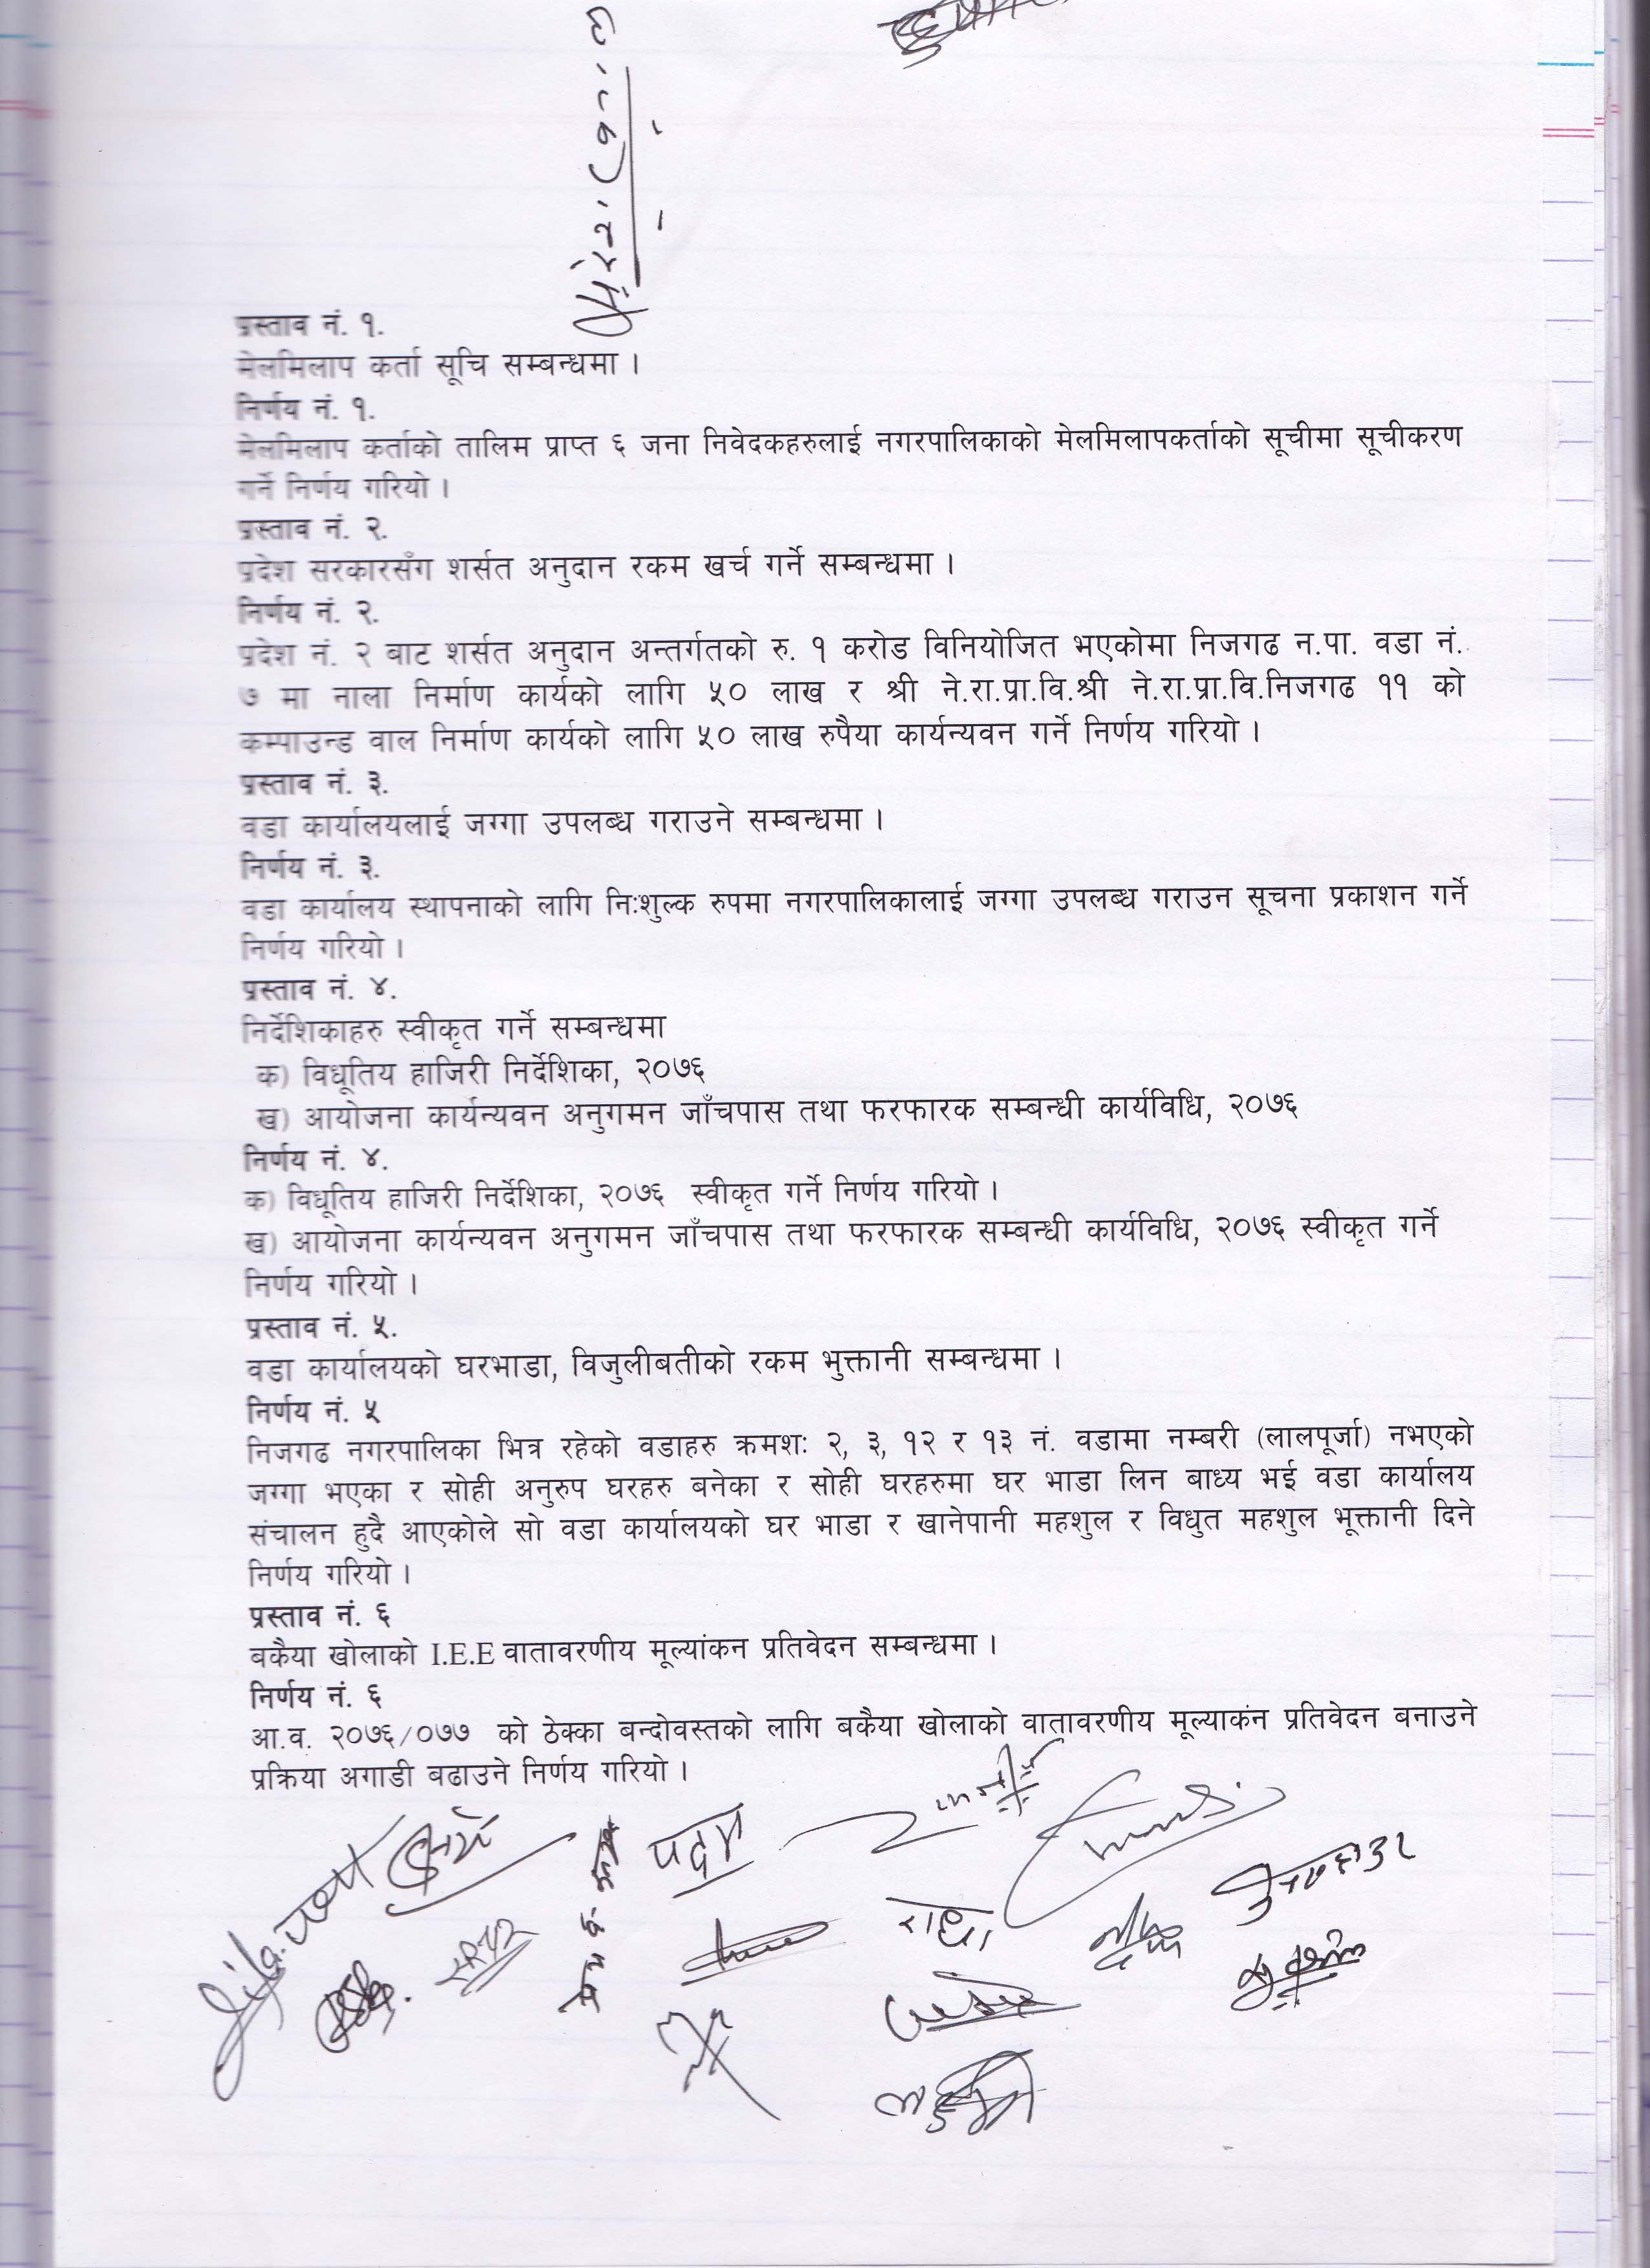 प्रस्ताव नं. १.
मेलमिलाप कर्ता सूचि सम्बन्धमा ।
निर्णय नं. १.
मेलमिलाप कर्ताको तालिम प्राप्त ६ जना निवेदकहरुलाई नगरपालिकाको मेलमिलापकर्ताको सूचीमा सूचीकरण
गर्ने निर्णय गरियो ।
प्रस्ताव नं. २.
प्रदेश सरकारसँग शर्सत अनुदान रकम खर्च गर्ने सम्बन्धमा ।
निर्णय नं. २.
प्रदेश नं. २ बाट शर्सत अनुदान अन्तर्गतको रु. १ करोड विनियोजित भएकोमा निजगढ न.पा. वडा नं.
७ मा नाला निर्माण कार्यको लागि ५० लाख र श्री ने.रा.प्रा.वि.श्री ने.रा.प्रा.वि.निजगढ ११ को
कम्पाउन्ड वाल निर्माण कार्यको लागि ५० लाख रुपैया कार्यन्यवन गर्ने निर्णय गरियो ।
प्रस्ताव नं. ३.
वडा कार्यालयलाई जग्गा उपलब्ध गराउने सम्बन्धमा ।
निर्णय नं. ३.
वडा कार्यालय स्थापनाको लागि निःशुल्क रुपमा नगरपालिकालाई जग्गा उपलब्ध गराउन सूचना प्रकाशन गर्ने
निर्णय गरियो ।
प्रस्ताव नं. ४.
निर्देशिकाहरु स्वीकृत गर्ने सम्बन्धमा
क) विधूतिय हाजिरी निर्देशिका, २०७६
ख) आयोजना कार्यन्यवन अनुगमन जाँचपास तथा फरफारक सम्बन्धी कार्यविधि, २०७६
निर्णय नं. ४.
क) विधूतिय हाजिरी निर्देशिका, २०७६ स्वीकृत गर्ने निर्णय गरियो ।
ख) आयोजना कार्यन्यवन अनुगमन जाँचपास तथा फरफारक सम्बन्धी कार्यविधि, २०७६ स्वीकृत गर्ने
निर्णय गरियो ।
प्रस्ताव नं. ५.
वडा कार्यालयको घरभाडा, विजुलीबतीको रकम भुक्तानी सम्बन्धमा ।
निर्णय नं. ५
निजगढ नगरपालिका भित्र रहेको वडाहरु क्रमशः २, ३, १२ र १३ नं. वडामा नम्बरी (लालपूर्जा) नभएको
जग्गा भएका र सोही अनुरुप घरहरु बनेका र सोही घरहरुमा घर भाडा लिन बाध्य भई वडा कार्यालय
संचालन हुदै आएकोले सो वडा कार्यालयको घर भाडा र खानेपानी महशुल र विधुत महशुल भूक्तानी दिने
निर्णय गरियो ।
प्रस्ताव नं. ६
बकैया खोलाको I.E.E वातावरणीय मूल्यांकन प्रतिवेदन सम्बन्धमा ।
निर्णय नं. ६
आ.व. २०७६/०७७ को ठेक्का बन्दोवस्तको लागि बकैया खोलाको वातावरणीय मूल्याकंन प्रतिवेदन बनाउने
प्रक्रिया अगाडी बढाउने निर्णय गरियो ।
पदम
राधा